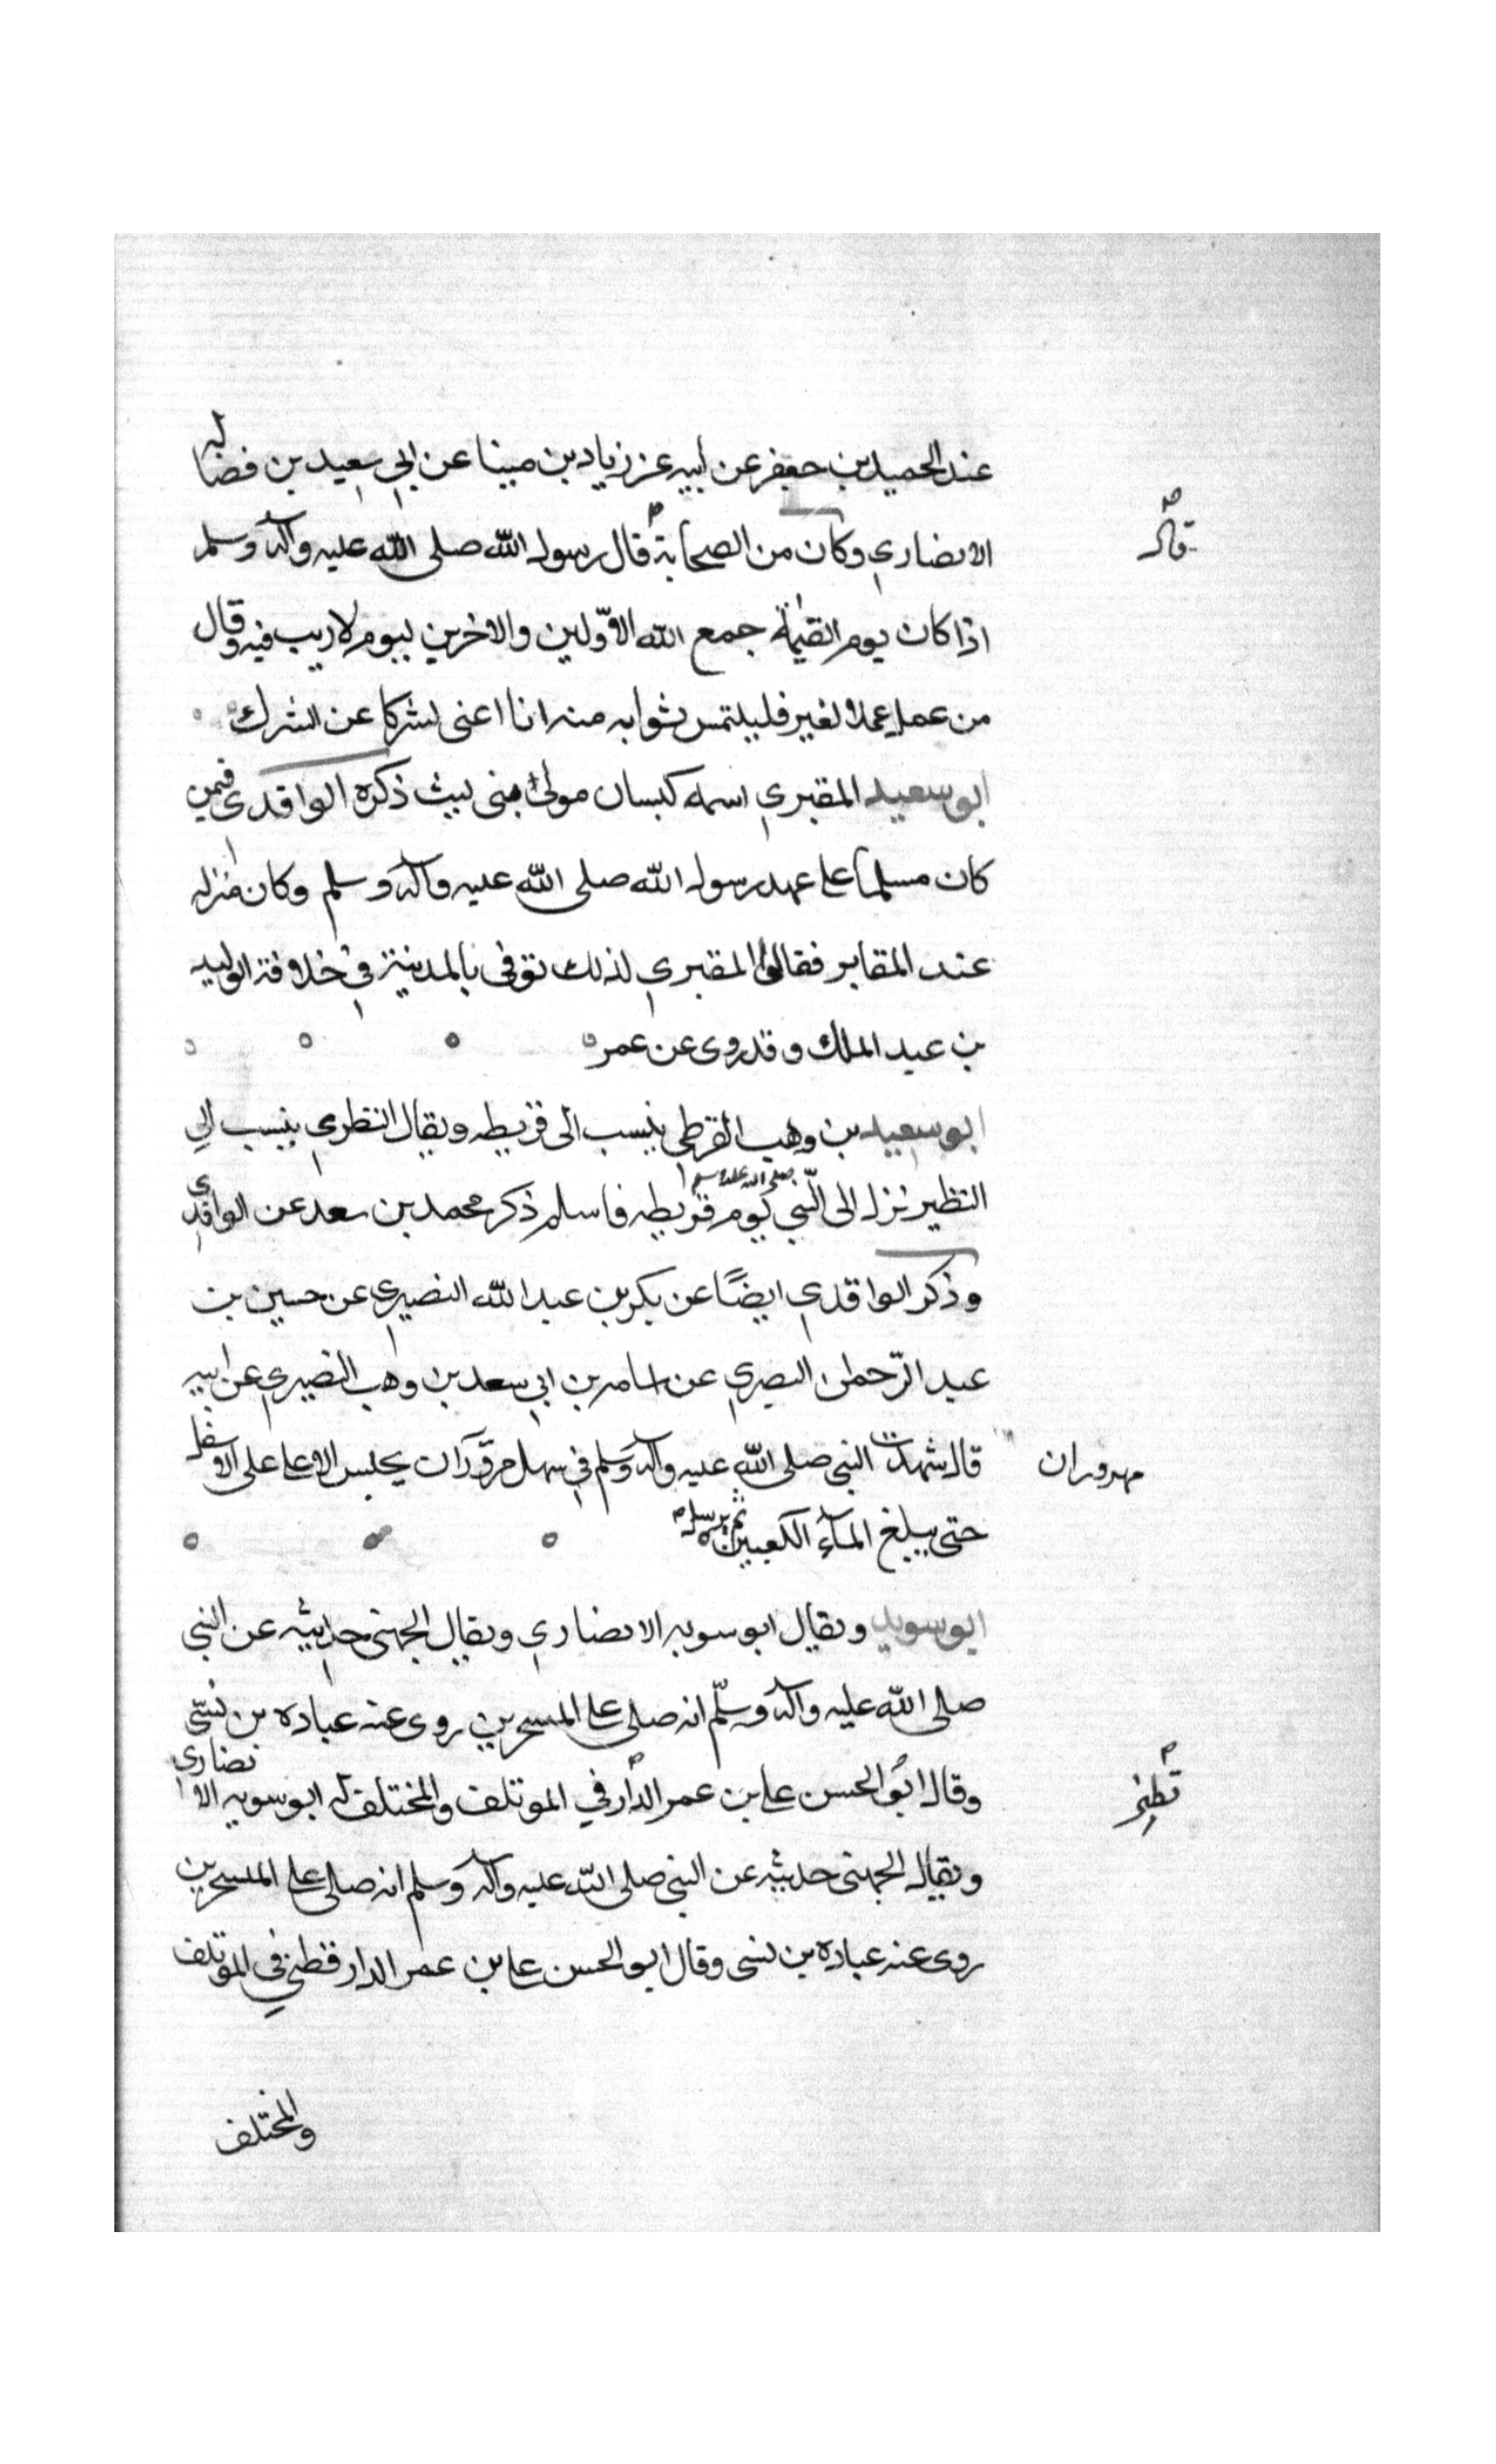 عند الحميد بن جعفر عن ابيه عن زياد بن مينا عن ابي سعيد بن فضاله
الانصاري وكان من الصحابة قال رسول الله صلى الله عليه وآله وسلم
قال
اذا كان يوم القيمة جمع الله الاوّلين والاخرين ليوم لا ريب فيه وقال
من عمل عملا لغير فليلتمس ثوابه منه انا اغنى لشركا عن الشرك
ابو سعيد المقبري اسمه كيسان مولى بنى ليث ذكره الواقدي فيمن
كان مسلماً على عهد رسول الله صلى الله عليه وآله وسلم وكان منزله
عند المقابر فقالوا المقبري لذلك توفى بالمدينة في خلافة الوليد
بن عبد الملك وقد روى عن عمر
ابو سعيد بن وهب القرظى ينسب الى قريظه ويقال النظرى ينسب الي
النظير نزل الى النّبي صلى الله عليه وسلم يوم قريظه فاسلم ذكر محمد بن سعد عن الواقدي
وذكر الواقدي ايضًا عن بكر بن عبد الله النصيرى عن حسين بن
عبد الرّحمن النصيري عن اسامه بن ابي سعد بن وهب النصيري عن ابيه
قال شهدت النبي صلى الله عليه وآله وسلم في سهل مهزوران يحلبس الاعلا على الاسفل
مهروران
حتى يبلغ المآء الكعبين ثم يرسله
ابو سويد ويقال ابو سويه الانصاري ويقال الجهنى حديثه عن النبي
صلى الله عليه وآله وسلّم انه صلى على المسحرين روى عنه عباده بن نسّى
وقال ابو الحسن على بن عمر الدار في الموتلف والمختلف له ابو سويه الانصاري
قطني
ويقال الجهنى حديثه عن النبي صلى الله عليه وآله وسلم انه صلى على المسحرين
روى عنه عباده بن نسى وقال ابو الحسن على بن عمر الدارقطني في الموتلف
والمختلف